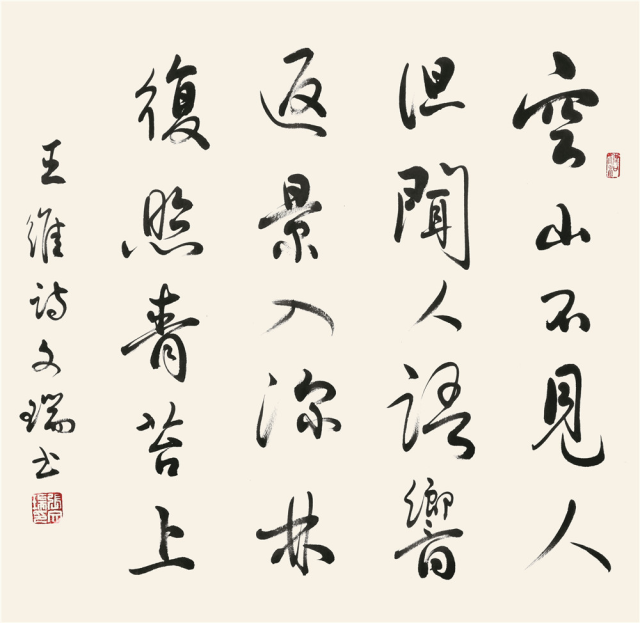 空山不見人
但聞人語響
返景入深林
復照青苔上
王維詩文瑞书